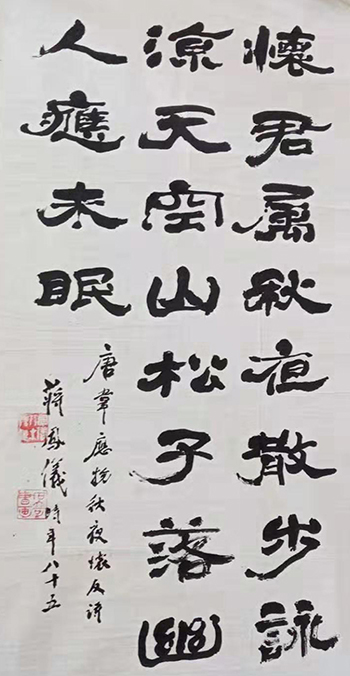 懷君属秋夜散步詠
涼天空山松子落幽
人應未眠
唐韋應物秋夜懷友詩
蔣鳳儀時年八十五